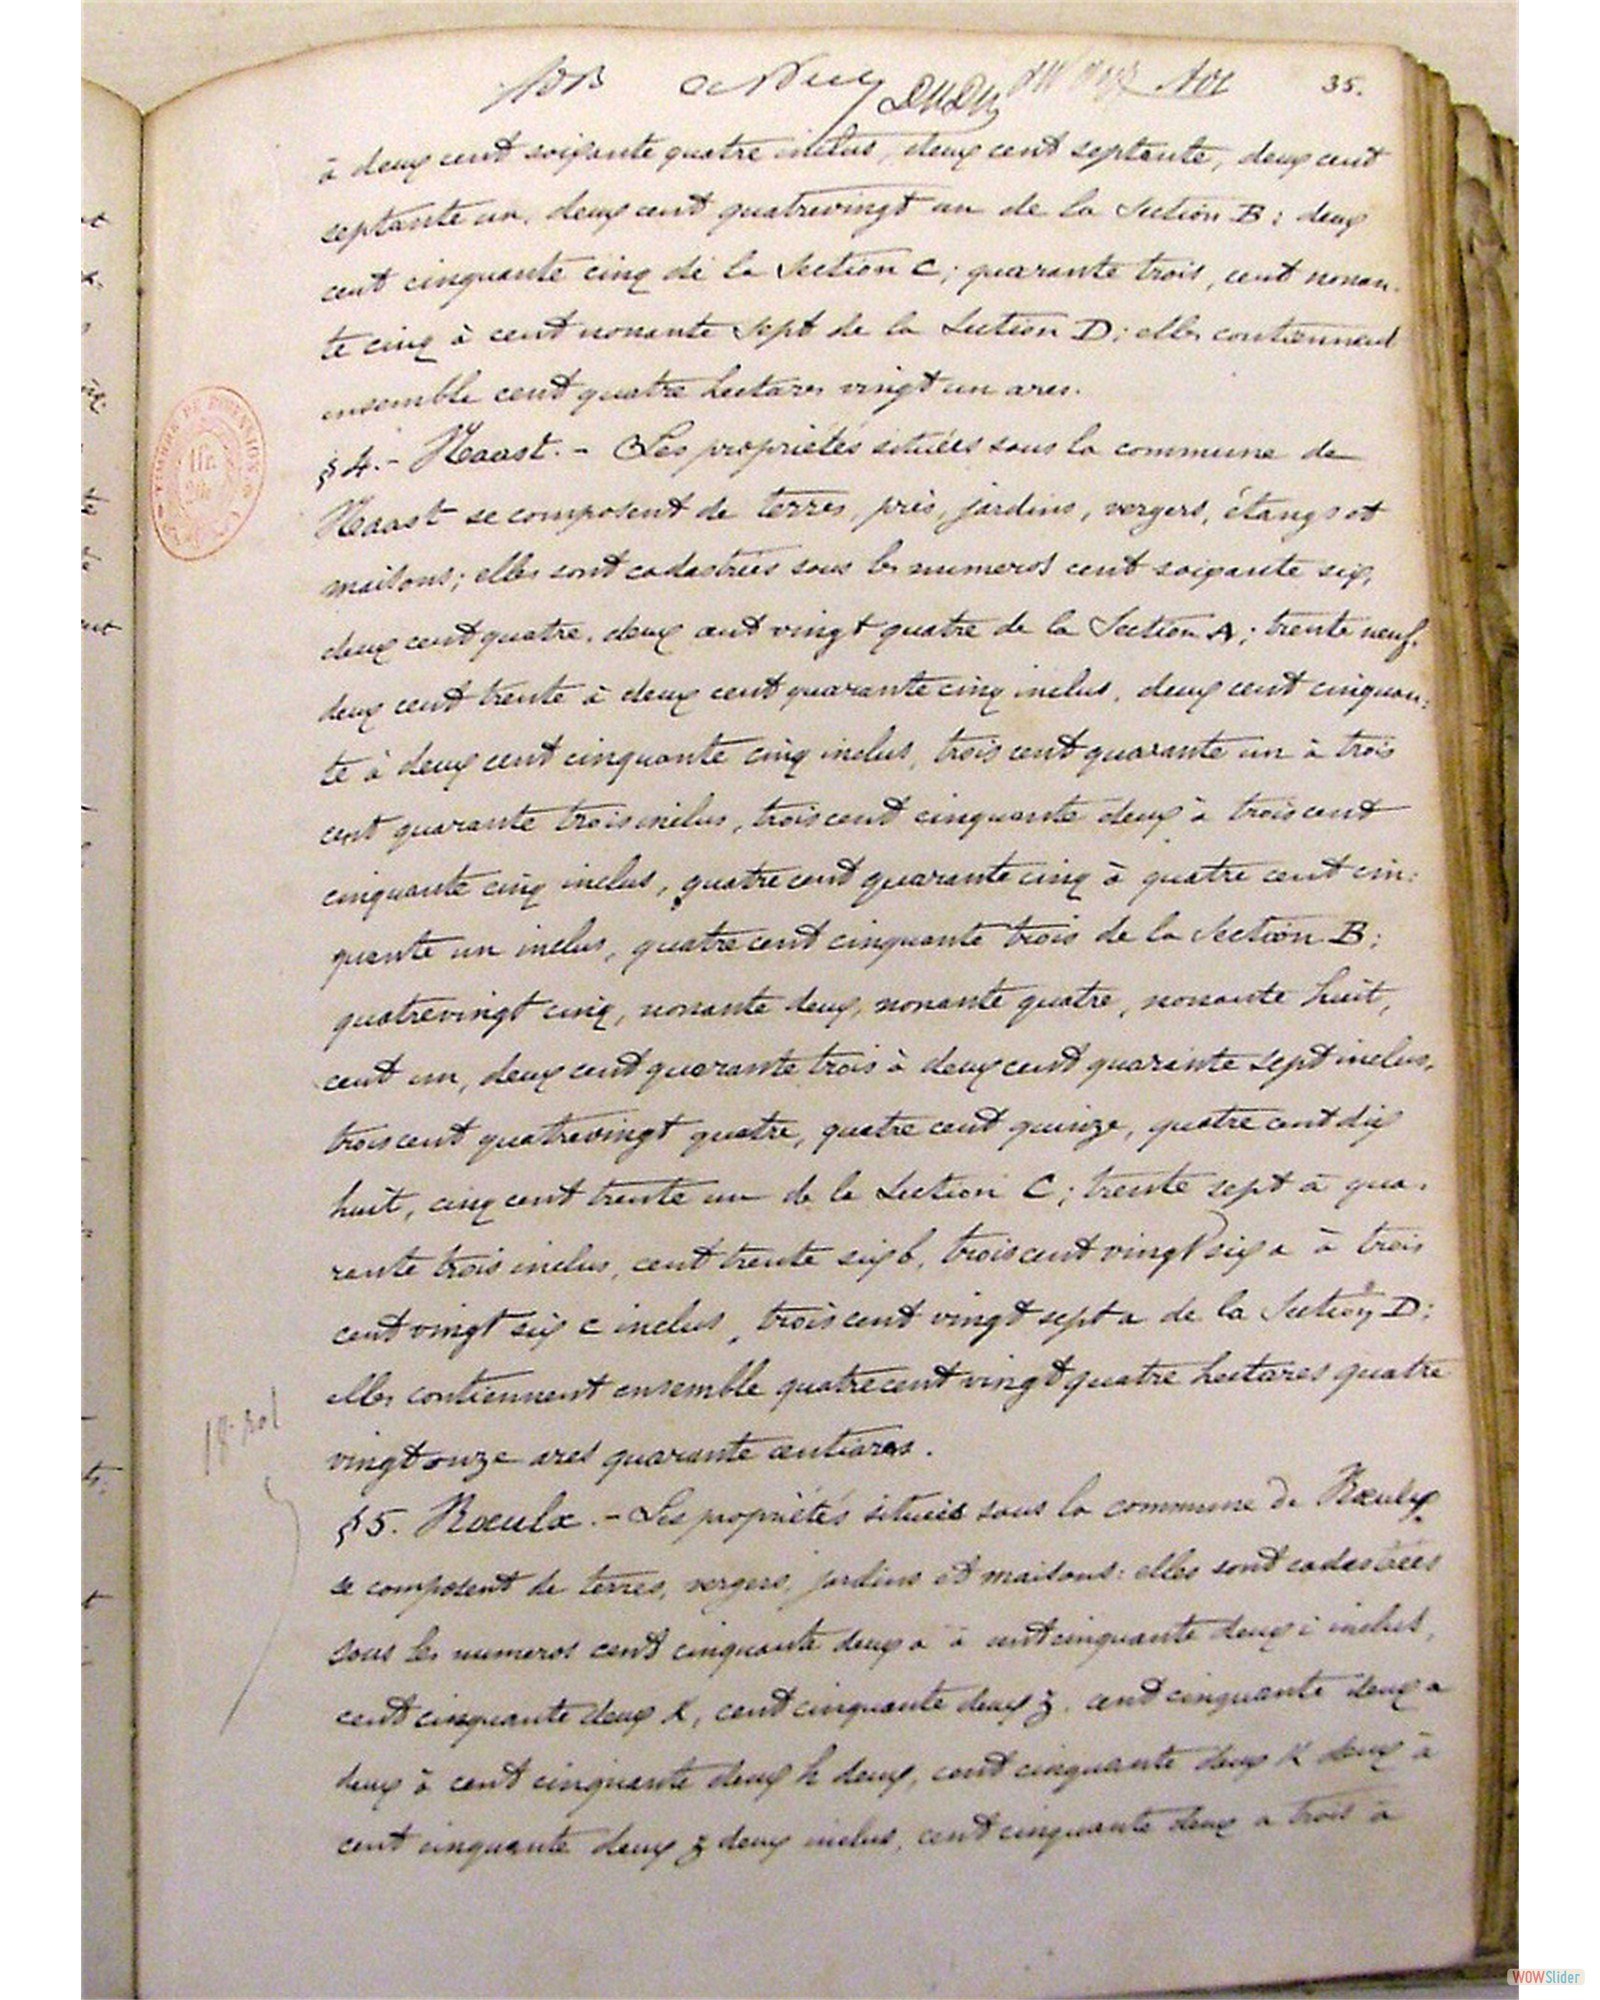 35.
à deux cent soixante quatre inclus, deux cent septante, deux cent
septante un, deux cent quatrevingt un de la Section B; deux
cent cinquante cinq de la Section C; quarante trois, cent nonan-
te cinq à cent nonante sept de la Section D; elles contiennent
ensemble cent quatre hectares vingt un ares.
§ 4. - Naast. - Les propriétés situées sous la commune de
Naast se composent de terres, prés, jardins, vergers, étangs et
maisons; elles sont cadastrées sous les numeros cent soixante six,
deux cent quatre, deux cent vingt quatre de la Section A; trente neuf,
deux cent trente à deux cent quarante cinq inclus, deux cent cinquan:
te à deux cent cinquante cinq inclus, trois cent quarante un à trois
cent quarante trois inclus, trois cent cinquante deux à trois cent
cinquante cinq inclus, quatre cent quarante cinq à quatre cent cin:
quante un inclus, quatre cent cinquante trois de la Section B;
quatrevingt cinq, nonante deux, nonante quatre, nonante huit,
cent un, deux cent quarante trois à deux cent quarante sept inclus,
trois cent quatrevingt quatre, quatre cent quinze, quatre cent dix
huit, cinq cent trente un de la Section C; trente sept à qua-
rante trois inclus, cent trente six b, trois cent vingt six a à trois
cent vingt six c inclus, trois cent vingt sept a de la Section D;
elles contiennent ensemble quatre cent vingt quatre hectares quatre
vingt onze ares quarante centiares.
§ 5. Rœulx. - Les propriétés situées sous la commune de Rœulx
se composent de terres, vergers, jardins et maisons: elles sont cadastrées
sous les numeros cent cinquante deux a à cent cinquante deux i inclus,
cent cinquante deux K, cent cinquante deux z, cent cinquante deux a
deux à cent cinquante deux h deux, cent cinquante deux K deux à
cent cinquante deux z deux inclus, cent cinquante deux a trois à
WOWSlider